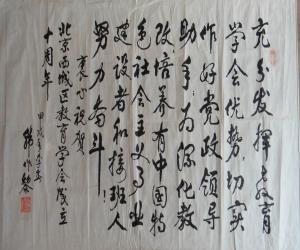 充分发挥教育
学会优势，切实
作好党政领导
助手，为深化教
改培养有中国特
色社会主义事业
建设者和接班人
努力奋斗！
衷心祝贺
北京西城区教育学会成立
十周年